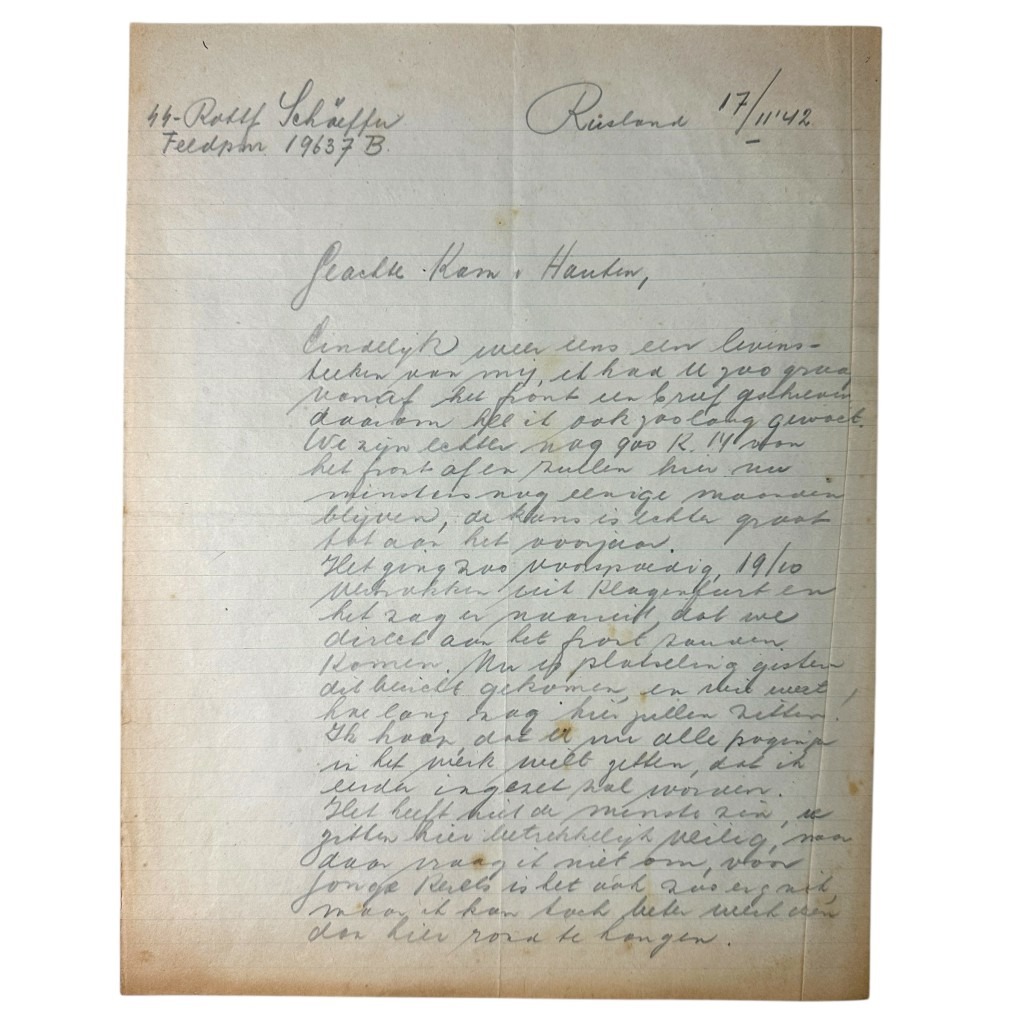 SS-Rottf Schäeffer
Feldpnr. 19637 B.
Rusland 17/11'42
Geachte Kam v Hauten,
Eindelijk weer eens een levens-
teeken van mij, ik had U zoo graag
vanaf het front een brief geschreven
daarom heb ik ook zoo lang gewacht.
We zijn echter nog 900 K.M van
het front af en zullen hier nu
minstens nog eenige maanden
blijven, de kans is echter groot
tot aan het voorjaar.
Het ging zoo voorspoedig, 19/10
vertrokken uit Klagenfurt en
het zag er naaruit, dat we
direct aan het front zouden
komen. Nu is plotseling gisteren
dit bericht gekomen, en wie weet,
hoe lang nog hier zullen zitten.
Ik hoop, dat U nu alle pogingen
in het werk wilt zetten, dat ik
eerder ingezet zal worden.
Het heeft niet de minste zin, we
zitten hier betrekkelijk veilig, maar
daar vraag ik niet om, voor
jonge Kerels is het ook zoo erg nit
maar ik kan toch beter werk doen
dan hier rond te hangen.